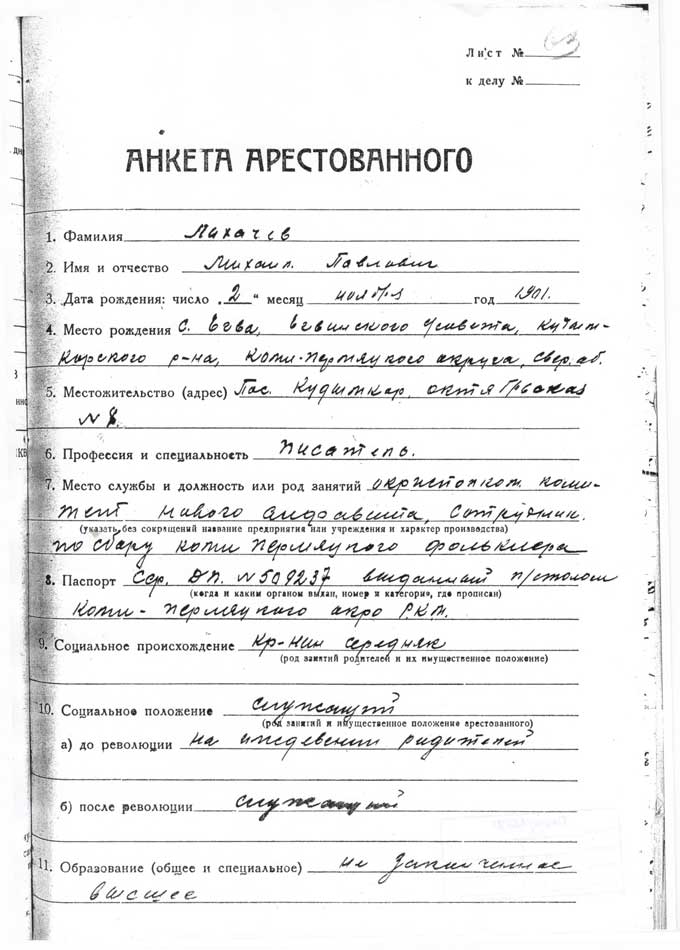 Лист № 63
к делу №
АНКЕТА АРЕСТОВАННОГО
1. Фамилия Лихачев
2. Имя и отчество Михаил Павлович
3. Дата рождения: число „2“ месяц ноября год 1901.
4. Место рождения С. Егва, Егвинского с/совета, Кудым-
карского р-на, Коми-Пермяцкого округа, Свер. об.
5. Местожительство (адрес) Пос. Кудымкар, октябрьская
№ 8.
6. Профессия и специальность Писатель.
7. Место службы и должность или род занятий окрисполком. коми-
тет нового алфавита, сотрудник.
(указать без сокращений название предприятия или учреждения и характер производства)
по сбору коми пермяцкого фольклера
8. Паспорт Сер. ДП. № 509237 выданный п/столом
(когда и каким органом выдан, номер и категория, где прописан)
Коми-Пермяцкого окро РКМ.
9. Социальное происхождение кр-нин середняк
(род занятий родителей и их имущественное положение)
10. Социальное положение служащий
(род занятий и имущественное положение арестованного)
а) до революции на иждевении родителей
б) после революции служащий
11. Образование (общее и специальное) не законченное
высшее